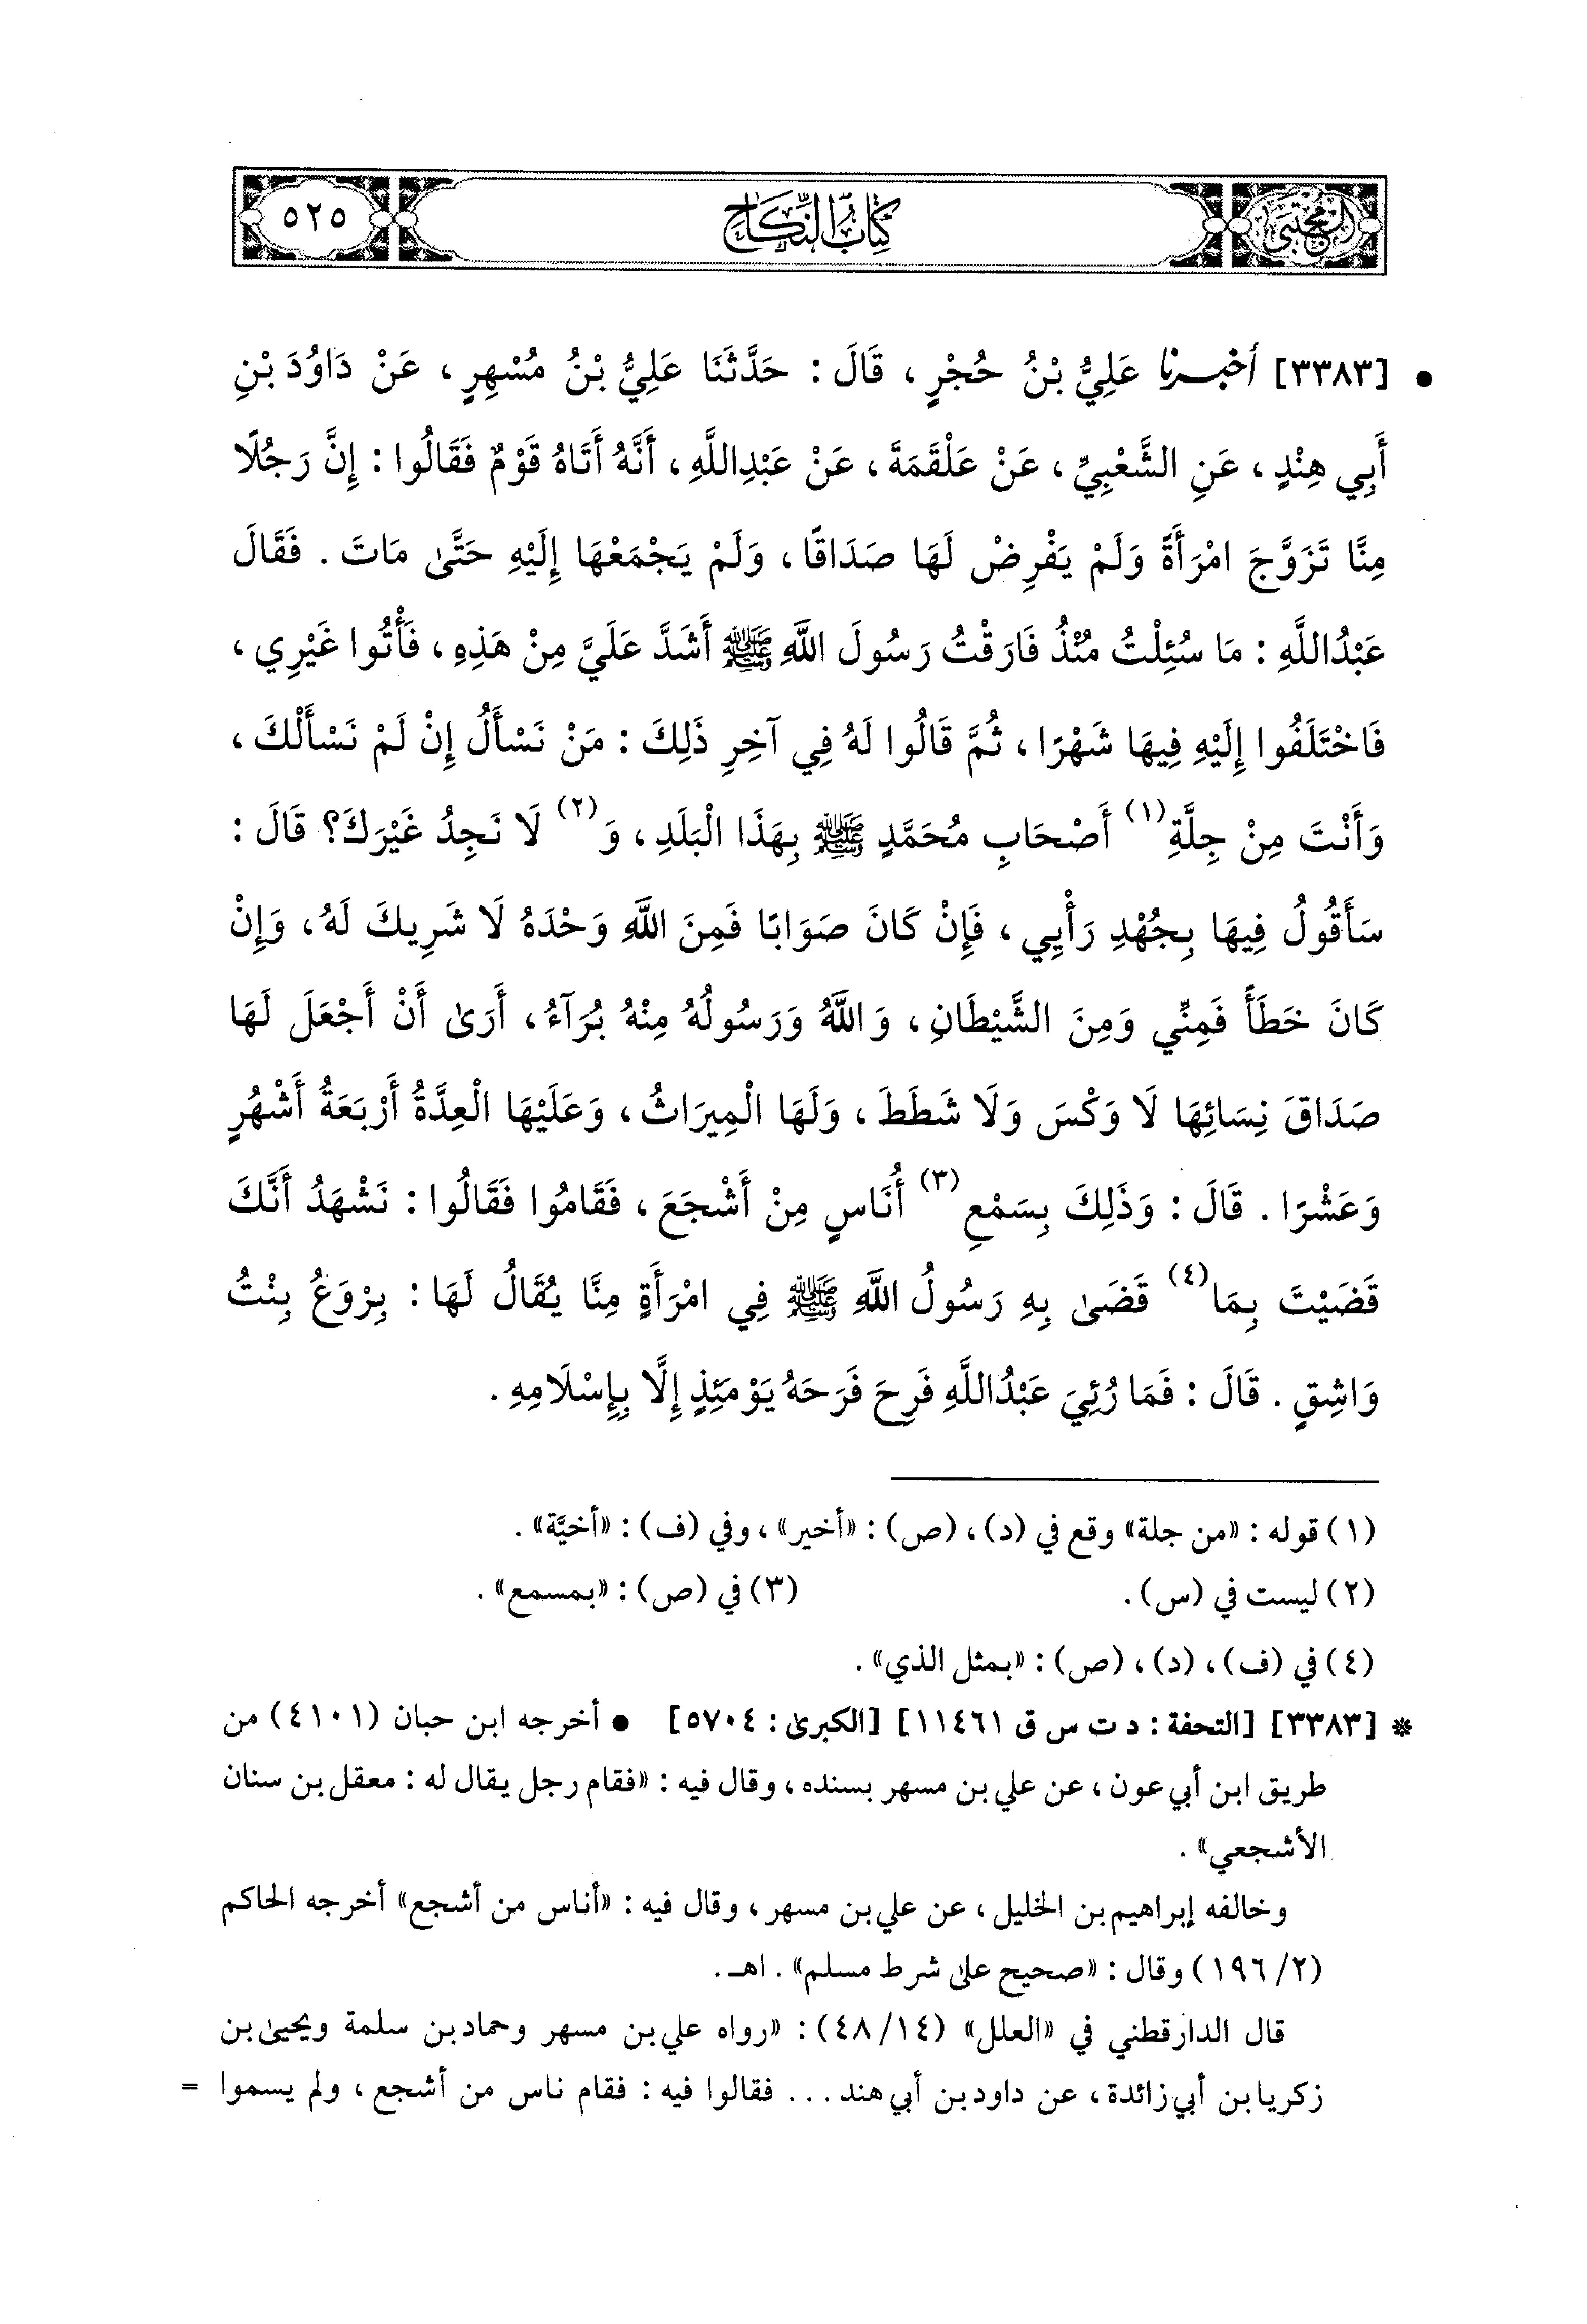 المجتبى
كتاب النكاح
٥٢٥
• [٣٣٨٣] أخبرنا عَلِيُّ بْنُ حُجْرٍ، قَالَ: حَدَّثَنَا عَلِيُّ بْنُ مُسْهِرٍ، عَنْ دَاوُدَ بْنِ
أَبِي هِنْدٍ، عَنِ الشَّعْبِيِّ، عَنْ عَلْقَمَةَ، عَنْ عَبْدِاللَّهِ، أَنَّهُ أَتَاهُ قَوْمٌ فَقَالُوا: إِنَّ رَجُلًا
مِنَّا تَزَوَّجَ امْرَأَةً وَلَمْ يَفْرِضْ لَهَا صَدَاقًا، وَلَمْ يَجْمَعْهَا إِلَيْهِ حَتَّىٰ مَاتَ. فَقَالَ
عَبْدُاللَّهِ: مَا سُئِلْتُ مُنْذُ فَارَقْتُ رَسُولَ اللَّهِ ﷺ أَشَدَّ عَلَيَّ مِنْ هَذِهِ، فَأْتُوا غَيْرِي،
فَاخْتَلَفُوا إِلَيْهِ فِيهَا شَهْرًا، ثُمَّ قَالُوا لَهُ فِي آخِرِ ذَلِكَ: مَنْ نَسْأَلُ إِنْ لَمْ نَسْأَلْكَ،
وَأَنْتَ مِنْ جِلَّةِ(١) أَصْحَابِ مُحَمَّدٍ ﷺ بِهَذَا الْبَلَدِ، وَ(٢) لَا نَجِدُ غَيْرَكَ؟ قَالَ:
سَأَقُولُ فِيهَا بِجُهْدِ رَأْيِي، فَإِنْ كَانَ صَوَابًا فَمِنَ اللَّهِ وَحْدَهُ لَا شَرِيكَ لَهُ، وَإِنْ
كَانَ خَطَأً فَمِنِّي وَمِنَ الشَّيْطَانِ، وَاللَّهُ وَرَسُولُهُ مِنْهُ بُرَآءُ، أَرَىٰ أَنْ أَجْعَلَ لَهَا
صَدَاقَ نِسَائِهَا لَا وَكْسَ وَلَا شَطَطَ، وَلَهَا الْمِيرَاثُ، وَعَلَيْهَا الْعِدَّةُ أَرْبَعَةُ أَشْهُرٍ
وَعَشْرًا. قَالَ: وَذَلِكَ بِسَمْعِ(٣) أُنَاسٍ مِنْ أَشْجَعَ، فَقَامُوا فَقَالُوا: نَشْهَدُ أَنَّكَ
قَضَيْتَ بِمَا(٤) قَضَىٰ بِهِ رَسُولُ اللَّهِ ﷺ فِي امْرَأَةٍ مِنَّا يُقَالُ لَهَا: بِرْوَعُ بِنْتُ
وَاشِقٍ. قَالَ: فَمَا رُئِيَ عَبْدُاللَّهِ فَرِحَ فَرَحَهُ يَوْمَئِذٍ إِلَّا بِإِسْلَامِهِ.
(١) قوله: «من جلة» وقع في (د)، (ص): «أخير»، وفي (ف): «أخيَّة».
(٢) ليست في (س). (٣) في (ص): «بمسمع».
(٤) في (ف)، (د)، (ص): «بمثل الذي».
* [٣٣٨٣] [التحفة: د ت س ق ١١٤٦١] [الكبرىٰ: ٥٧٠٤] • أخرجه ابن حبان (٤١٠١) من
طريق ابن أبي عون، عن علي بن مسهر بسنده، وقال فيه: «فقام رجل يقال له: معقل بن سنان
الأشجعي».
وخالفه إبراهيم بن الخليل، عن علي بن مسهر، وقال فيه: «أناس من أشجع» أخرجه الحاكم
(٢/ ١٩٦) وقال: «صحيح علىٰ شرط مسلم». اهـ.
قال الدارقطني في «العلل» (١٤/ ٤٨): «رواه علي بن مسهر وحماد بن سلمة ويحيىٰ بن
زكريا بن أبي زائدة، عن داود بن أبي هند... فقالوا فيه: فقام ناس من أشجع، ولم يسموا =